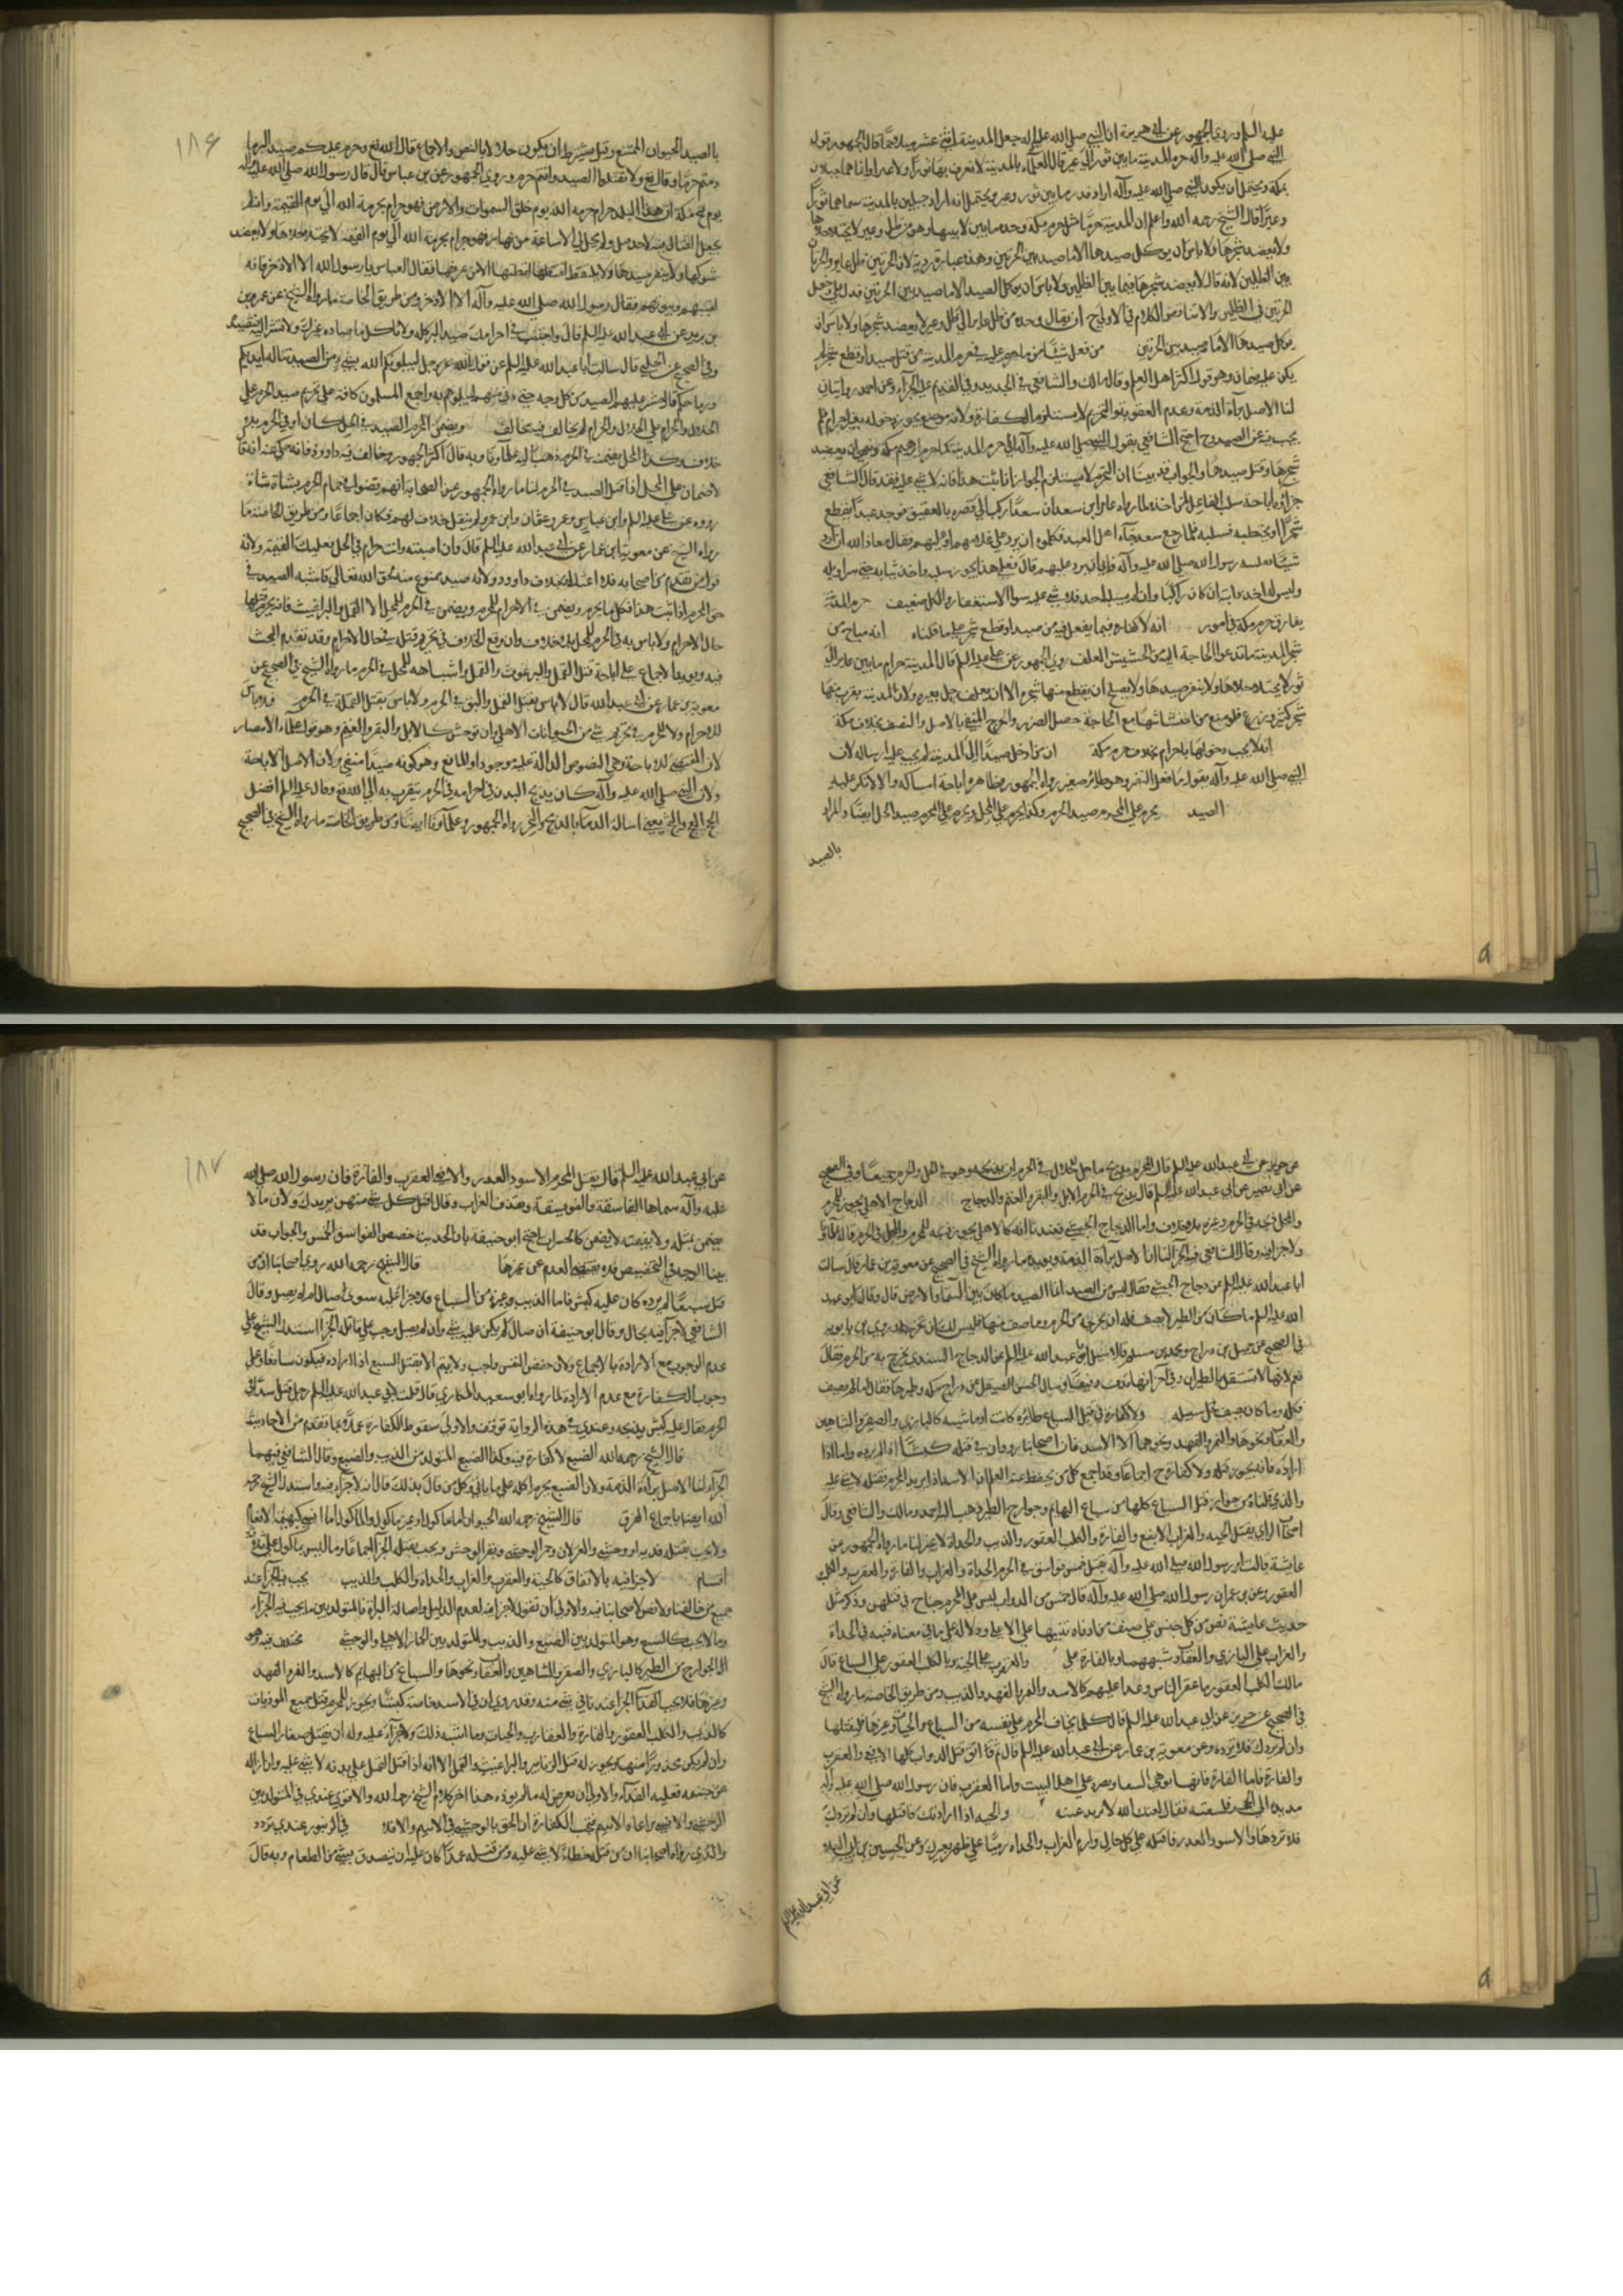 عليه السلم وروى الجمهور عن ابى هريرة ان النبى صلى الله عليه وآله جعل المدينة اثنى عشر ميلا حمى قال الجمهور قول
النبى صلى الله عليه وآله حرم المدينة ما بين ثور الى عير قال العلماء بالمدينة لا نعرف بها ثورا ولا عيرا وانما هما جبلان
بمكة ويحتمل ان يكون النبى صلى الله عليه وآله اراد قدر ما بين ثور وعير ويحتمل انه اراد جبلين بالمدينة سماهما ثورا
وعيرا قال الشيخ رحمه الله واعلم ان للمدينة حرما مثل حرم مكة وحده ما بين لابتيها وهو من ظل وعير لا يختلا خلاها
ولا يعضد شجرها ولا باس ان يوكل صيدها الا ما صيد بين الحرتين وهذه عبارة ردية لان الحرتين
بين الظلين لانه قال لا يعضد شجرها فيما بين الظلين ولا باس ان يوكل الصيد الا ما صيد بين الحرتين فدل على دخول
الحرتين فى الظلين والا تناقض الكلام فالاولى ح ان يقال وحده من ظل عاير الى ظل وعير لا يعضد شجرها ولا باس ان
يوكل صيدها الا ما صيد بين الحرتين من فعل شيئا من ما حرم عليه فى حرم المدينة من قتل صيد او قطع شجر لم
يكن عليه ضمان وهو قول اكثر اهل العلم وقال مالك والشافعى فى الجديد وفى القديم عليه الجزاء وعن احمد روايتان
لنا الاصل براءة الذمة وعدم العقوبة والتحريم لا يستلزم الكفارة ولانه موضع يجوز دخوله بغير احرام فلم
يجب فيه عن الصيد ح احتج الشافعى بقول النبى صلى الله عليه وآله انى احرم المدينة كما حرم ابراهيم مكة ونهى ان يعضد
شجرها وقتل صيدها والجواب قد بينا ان التحريم لا يستلزم الجواز اذا ثبت هذا فانه لا شى عليه فقد قال الشافعى
جزاؤه اباحة سلب القاتل لمن اخذه لما رواه عامر ابن سعد ان سعدا ركب الى قصره بالعقيق فوجد عبدا يقطع
شجرا او يخبطه فسلبه فلما رجع سعد جاء اهل العبد فكلموه ان يرد على غلامهم او عليهم فقال معاذ الله ان ارد
شيئا نفلنيه رسول الله صلى الله عليه وآله فابى ان يرد عليهم قال فعلى هذا يجوز سلبه واخذ ثيابه حتى سراويله
وليس له اخذ دابته ان كان راكبا وان لم يسلبه احد فلا شى عليه سوا الاستغفار والكل ضعيف حرم المدينة
يفارق حرم مكة فى امور انه لا كفارة فيما يفعل فيه من صيد او قطع شجر على ما قلناه انه مباح من
شجر المدينة ما تدعو الحاجة اليه من الحشيش للعلف روى الجمهور عن على عليه السلم قال المدينة حرام ما بين عاير الى
ثور لا يختلا خلاها ولا ينفر صيدها ولا يصلح ان يقطع منها شجرة الا ان يعلف رجل بعيره ولان المدينة يقرب منها
شجر كثير وزرع فلو منع من احتشاشها مع الحاجة حصل الضرر والحرج المنفى بالاصل والنص بخلاف مكة
انه لا يجب دخولها باحرام بخلاف حرم مكة ان من ادخل صيدا الى المدينة لم يجب عليه ارساله لان
النبى صلى الله عليه وآله يقول ما فعل النغير وهو طائر صغير رواه الجمهور وظاهره اباحة امساكه والا لانكر عليه
الصيد يحرم على المحرم صيد الحرم وكذا يحرم على المحل ويحرم على المحرم صيد الحل ايضا والمراد
بالصيد
١٨۶
بالصيد الحيوان الممتنع وقيل يشترط ان يكون حلالا بالنص والاجماع قال الله تع وحرم عليكم صيد البر ما
دمتم حرما وقال تع ولا تقتلوا الصيد وانتم حرم وروى الجمهور عن بن عباس قال قال رسول الله صلى الله عليه وآله
يوم فتح مكة ان هذا البلد حرام حرمه الله يوم خلق السموات والارض فهو حرام بحرمة الله الى يوم القيمة وانه لم
يحل القتال فيه لاحد قبلى ولم يحل لى الا ساعة من نهار فهو حرام بحرمة الله الى يوم القيمة لا يختلا خلاها ولا يعضد
شوكها ولا ينفر صيدها ولا يلتقط لقطتها الا من عرفها فقال العباس يا رسول الله الا الاذخر فانه
لقينهم وبيوتهم فقال رسول الله صلى الله عليه وآله الا الاذخر ومن طريق الخاصة ما رواه الشيخ عن عمر بن
بن يزيد عن ابى عبد الله عليه السلم قال واجتنب فى احرامك صيد البر كله ولا تاكل ما صاده غيرك ولا تشر اليه فيصيده
وفى الصحيح عن الحلبى قال سالت ابا عبد الله عليه السلم عن قول الله عز وجل ليبلونكم الله بشى من الصيد تناله ايديكم
ورماحكم قال حشر عليهم الصيد من كل وجه حتى دنى منهم ليبلوهم به واجمع المسلمون كافة على تحريم صيد الحرم على
الحلال والحرام لم يخالف فيه مخالف ويضمن المحرم الصيد فى الحل كان او فى الحرم بلا
خلاف وكذا المحل يضمنه فى الحرم ذهب اليه علماؤنا وبه قال اكثر الجمهور وخالف فيه داود فانه حكى عنه انه قال
لا ضمان على المحل اذا قتل الصيد فى الحرم لنا ما رواه الجمهور عن الصحابة انهم قضوا فى حمام الحرم بشاة شاة
رووه عن على عليه السلم وابن عباس وعمر وعثمان وابن عمر ولم ينقل خلاف لهم فكان اجماعا ومن طريق الخاصة ما
رواه الشيخ عن معوية ابن عمار عن ابى عبد الله عليه السلم قال وان اصبته وانت حرام فى الحل فعليك القيمة ولانه
قول من تقدم من اصحابه فلا اعتداد بخلاف داود ولانه صيد ممنوع منه لحق الله تعالى فاشبه الصيد فى
حق المحرم اذا ثبت هذا فكلما يحرم ويضمن فى الاحرام للمحرم ويضمن فى الحرم للمحل الا القمل والبراغيث فانه يحرم قتلها
حال الاحرام ولا باس به فى الحرم للمحل بلا خلاف وان وقع الخلاف فى تحريم قتله فى حال الاحرام وقد تقدم البحث
فيه ويدل الاجماع على اباحة قتل القمل والبرغوث والنمل واشباهه للمحل فى الحرم ما رواه الشيخ فى الصحيح عن
معوية بن عمار عن ابى عبد الله قال لا باس بقتل القمل والبق فى الحرم ولا باس بقتل النملة فى الحرم
للاحرام ولا للحرم فى تحريم شى من الحيوانات الاهلى وان توحش كالابل والبقر والغنم وهو قول علماء الامصار
لان المقتضى للاباحة وهى النصوص الدالة عليه موجود والمانع وهو كونه صيدا منتفى ولان الاصل الاباحة
ولان النبى صلى الله عليه وآله كان يذبح البدن فى احرامه فى الحرم يتقرب به الى الله تع وقال عليه السلم افضل
الحج العج والثج يعنى اسالة الدماء بالذبح والنحر رواه الجمهور وعلماؤنا ايضا ومن طريق الخاصة ما رواه الشيخ فى الصحيح
عن حريز عن ابى عبد الله عليه السلم قال المحرم يذبح ما حل للحلال فى الحرم ان يذبحه وهو فى الحل والحرم جميعا وفى الصحيح
عن ابى بصير عن ابى عبد الله عليه السلم قال يذبح فى الحرم الابل والبقر والغنم والدجاج الدجاج الاهلى يجوز للمحرم
والمحل ذبحه فى الحرم وغيره بلا خلاف واما الدجاج الحبشى فعندنا انه كالاهلى يجوز ذبحه للمحرم والمحل فى الحرم قاله علماؤنا
ولا جزاء فيه وقال الشافعى فيه الجزاء لنا ان الاصل براءة الذمة ويؤيده ما رواه الشيخ فى الصحيح عن معوية بن عمار قال سالت
ابا عبد الله عليه السلم عن دجاج الحبشى فقال ليس من الصيد انما الصيد ما كان بين السماء والارض قال وقال ابو عبد
الله عليه السلم ما كان من الطير لا يصف فله ان يخرجه من الحرم وما صف منها فليس لك ان تخرجه وروى بن بابويه
فى الصحيح عن جميل بن دراج ومحمد بن مسلم قالا سئل ابو عبد الله عليه السلم عن الدجاج السندى يخرج به من الحرم فقال
نعم لانها لا تستقل بالطيران وفى آخر انها تدف دفيفا وسال الحسن الصيقل عن دجاج مكة وطيرها فقال ما لم يصف
فكله وما كان يصف فخل سبيله ولا كفارة فى قتل السباع طائرة كانت او ماشية كالبازى والصقر والشاهين
والعقاب ونحوها والنمر والفهد ونحوهما الا الاسد فان اصحابنا رووا ان فى قتله كبشا اذا لم يرده واما اذا
اراده فانه يجوز قتله ولا كفارة ح اجماعا وقد اجمع كل من يحفظ عنه العلم ان الاسد اذا بدر المحرم فقتله لا شى عليه
والذى قلناه من جواز قتل السباع كلها من سباع البهايم وجوارح الطير ذهب اليه احمد ومالك والشافعى وقال
اصحاب الراى يقتل الحية والغراب الابقع والفارة والكلب العقور والذيب والحداة لا غير لنا ما رواه الجمهور عن
عايشة قالت امر رسول الله صلى الله عليه وآله بقتل خمس فواسق فى الحرم الحداة والغراب والفارة والعقرب والكلب
العقور وعن بن عمر ان رسول الله صلى الله عليه وآله قال خمس من الدواب ليس على المحرم جناح فى قتلهن وذكر مثل
حديث عايشة نص من كل جنس على صنف من ادناه تنبيها على الاعلى ودلالة على ما فى معناه فنبه فى الحداة
والغراب على البازى والعقاب وشبههما وبالفارة على والعقرب على الحية وبالكلب العقور على السباع قال
مالك الكلب العقور ما عقر الناس وعدا عليهم كالاسد والنمر والفهد والذيب ومن طريق الخاصة ما رواه الشيخ
فى الصحيح عن حريز عن ابى عبد الله عليه السلم قال كلما يخاف المحرم على نفسه من السباع والحيات وغيرها فليقتلها
وان لم يردك فلا ترده وعن معوية بن عمار عن ابى عبد الله عليه السلم قال ثم اتق قتل الدواب كلها الا الافعى والعقرب
والفارة فاما الفارة فانها توهى السقاء وتضرم على اهل البيت واما العقرب فان رسول الله صلى الله عليه وآله
مد يده الى الحجر فلسعته فقال لعنك الله لا برا تدعينه ولا والحية اذا ارادتك فاقتلها وان لم تردك
فلا تردها والاسود الغدر فاقتله على كل حال وارم الغراب والحداة رميا على ظهر بعيرك وعن الحسين بن ابى العلاء
عن ابى عبد الله عليه السلم
١٨٧
عن ابى عبد الله عليه السلم قال يقتل المحرم الاسود الغدر والافعى والعقرب والفارة فان رسول الله صلى الله
عليه وآله سماها الفاسقة والفويسقة ويقذف الغراب وقال اقتل كل شى منهن يريدك ولان ما لا
يضمن بمثله ولا بقيمته لا يضمن كالحشرات احتج ابو حنيفة بان الحديث خصص الفواسق الخمس والجواب قد
بينا الوجه فى التخصيص فلا يقتضى العدم عن غيرها قال الشيخ رحمه الله روى اصحابنا ان من
قتل سبعا لم يرده كان عليه كبش فاما الذيب وغيره من السباع فلا جزاء عليه سوى صال او لم يصل وقال
الشافعى لا جزاء فيه بحال وقال ابو حنيفة ان صال لم يكن عليه شى وان لم يصل وجب على قاتله الجزاء استدل الشيخ على
عدم الوجوب مع الارادة بالاجماع ولان حفظ النفس واجب ولا يتم الا بقتل السبع اذا اراده فيكون سائغا وعلى
وجوب الكفارة مع عدم الارادة لما رواه ابو سعيد المكارى قال قلت لابى عبد الله عليه السلم رجل قتل اسدا فى
الحرم فقال عليه كبش يذبحه وعندى فى هذه الرواية توقف والاولى سقوط الكفارة عملا بما تقدم من الاحاديث
قال الشيخ رحمه الله الضبع لا كفارة فيه وكذا السبع المتولد من الذيب والضبع وقال الشافعى فيهما
الجزاء لنا الاصل براءة الذمة ولان الضبع يحرم اكله على ما ياتى وكل من قال بذلك قال انه لا جزاء فيه واستدل الشيخ رحمه
الله ايضا باجماع الفرقة قال الشيخ رحمه الله الحيوان اما ماكول او غير ماكول والماكول اما انسى كبهيمة الانعام
ولا يجب بقتله فدية او وحشى والغزلان وحمر الوحش وبقر الوحش ويجب بقتله الجزاء اجماعا وما ليس بماكول على ثلثة
اقسام لا جزاء فيه بالاتفاق كالحية والعقرب والغراب والحداة والكلب والذيب يجب فيه الجزاء عند
جميع من خالفنا ولا نص لاصحابنا فيه والاولى ان نقول لا جزاء فيه لعدم الدليل واصالة البراءة فالمتولد بين ما يجب فيه الجزاء
وما لا يجب كالسبع وهو المتولد بين الضبع والذيب والمتولد بين الحمار الاهلى والوحشى مختلف فيه وهو
الجوارح من الطير كالبازى والصقر والشاهين والعقاب ونحوها والسباع من البهايم كالاسد والنمر والفهد
وغيرها فلا يجب الجزاء عندنا فى شى منه وقد روى ان فى الاسد خاصة كبشا ويجوز للمحرم قتل جميع الموذيات
كالذيب والكلب العقور والفارة والعقارب والحيات وما اشبه ذلك ولا جزاء عليه وله ان يقتل صغار السباع
وان لم يكن محذورا منها ويجوز له قتل الزنابير والبراغيث والقمل الا انه اذا قتل القمل على بدنه لا شى عليه وان ازاله
عن جسمه فعليه الفداء والاولى ان يعرض له ما لم يوذه هذا آخر كلام الشيخ رحمه الله والاقوى عندى فى المتولد بين
الوحشى والانسى مراعاة الاسم فتجب الكفارة ان لحق بالوحشى فى الاسم والا فلا فى الزنبور عندى تردد
والذى رواه اصحابنا ان من قتله خطاء لا شى عليه ومن قتله عمدا كان عليه ان يتصدق بشى من الطعام وبه قال